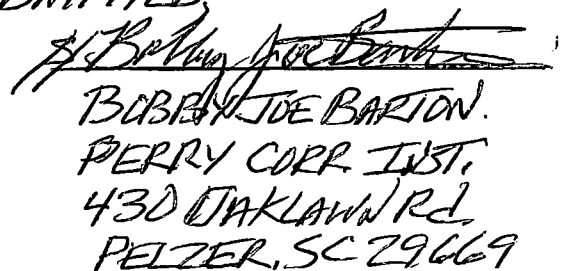 s/ Bobby Joe Barton
BOBBY JOE BARTON.
PERRY CORR. INST.
430 OAKLAWN Rd.
PELZER, SC 29669